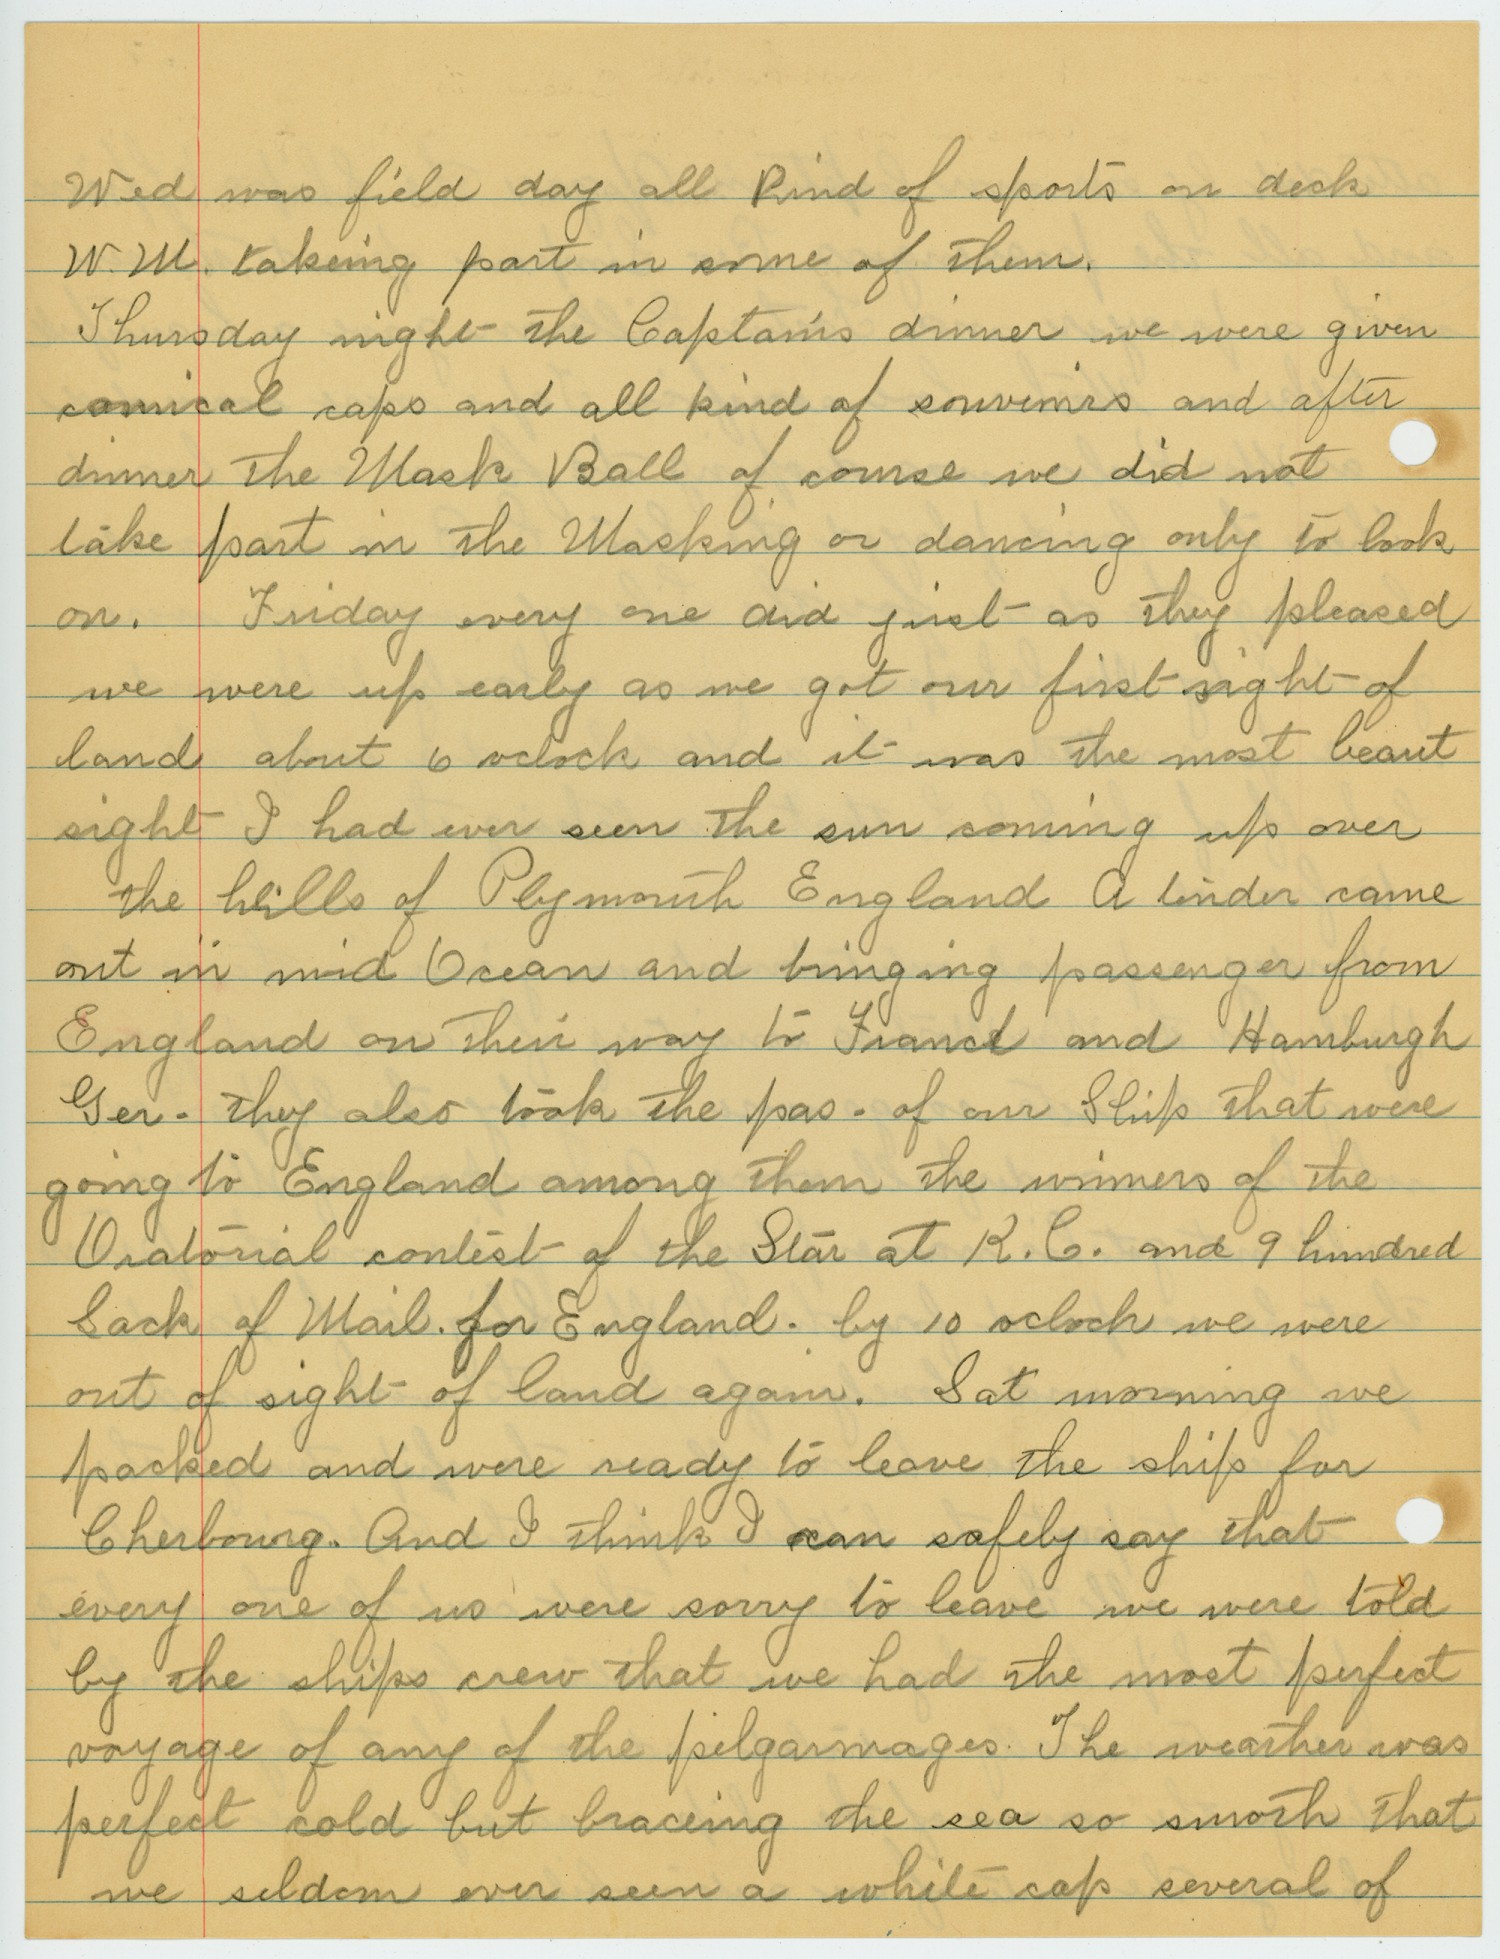 Wed was field day all kind of sports on deck
W.M. takeing part in some of them.
Thursday night the Captains dinner we were given
comical caps and all kind of souvenirs and after
dinner the Mask Ball of course we did not
take part in the Masking or dancing only to look
on. Friday every one did just as they pleased
we were up early as we got our first sight of
land about 6 oclock and it was the most beaut
sight I had ever seen the sun coming up over
the hills of Plymouth England A tinder came
out in mid Ocean and bringing passenger from
England on their way to France and Hamburgh
Ger. they also took the pas. of our Ship that were
going to England among them the winners of the
Oratorial contest of the Star at K.C. and 9 hundred
Sack of Mail. for England. by 10 oclock we were
out of sight of land again. Sat morning we
packed and were ready to leave the ship for
Cherbourg. And I think I can safely say that
every one of us were sorry to leave we were told
by the ships crew that we had the most perfect
voyage of any of the pilgarmages. The weather was
perfect cold but braceing the sea so smoth that
we seldom ever seen a white cap several of